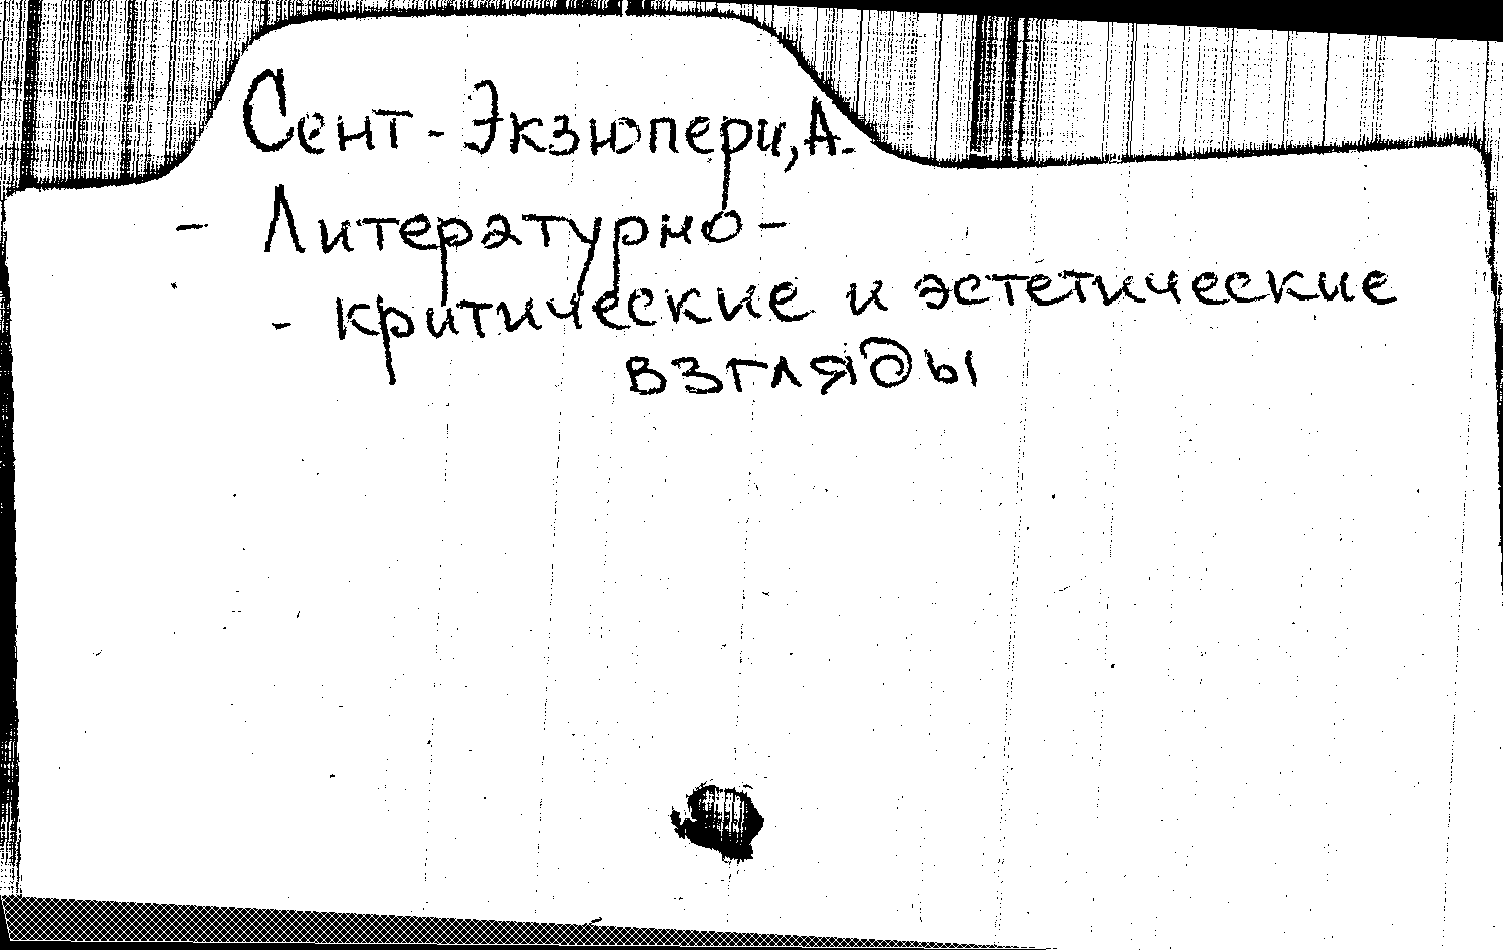 Сент-Экзюпери, А.
- Литературно-
- критические и эстетические
взгляды